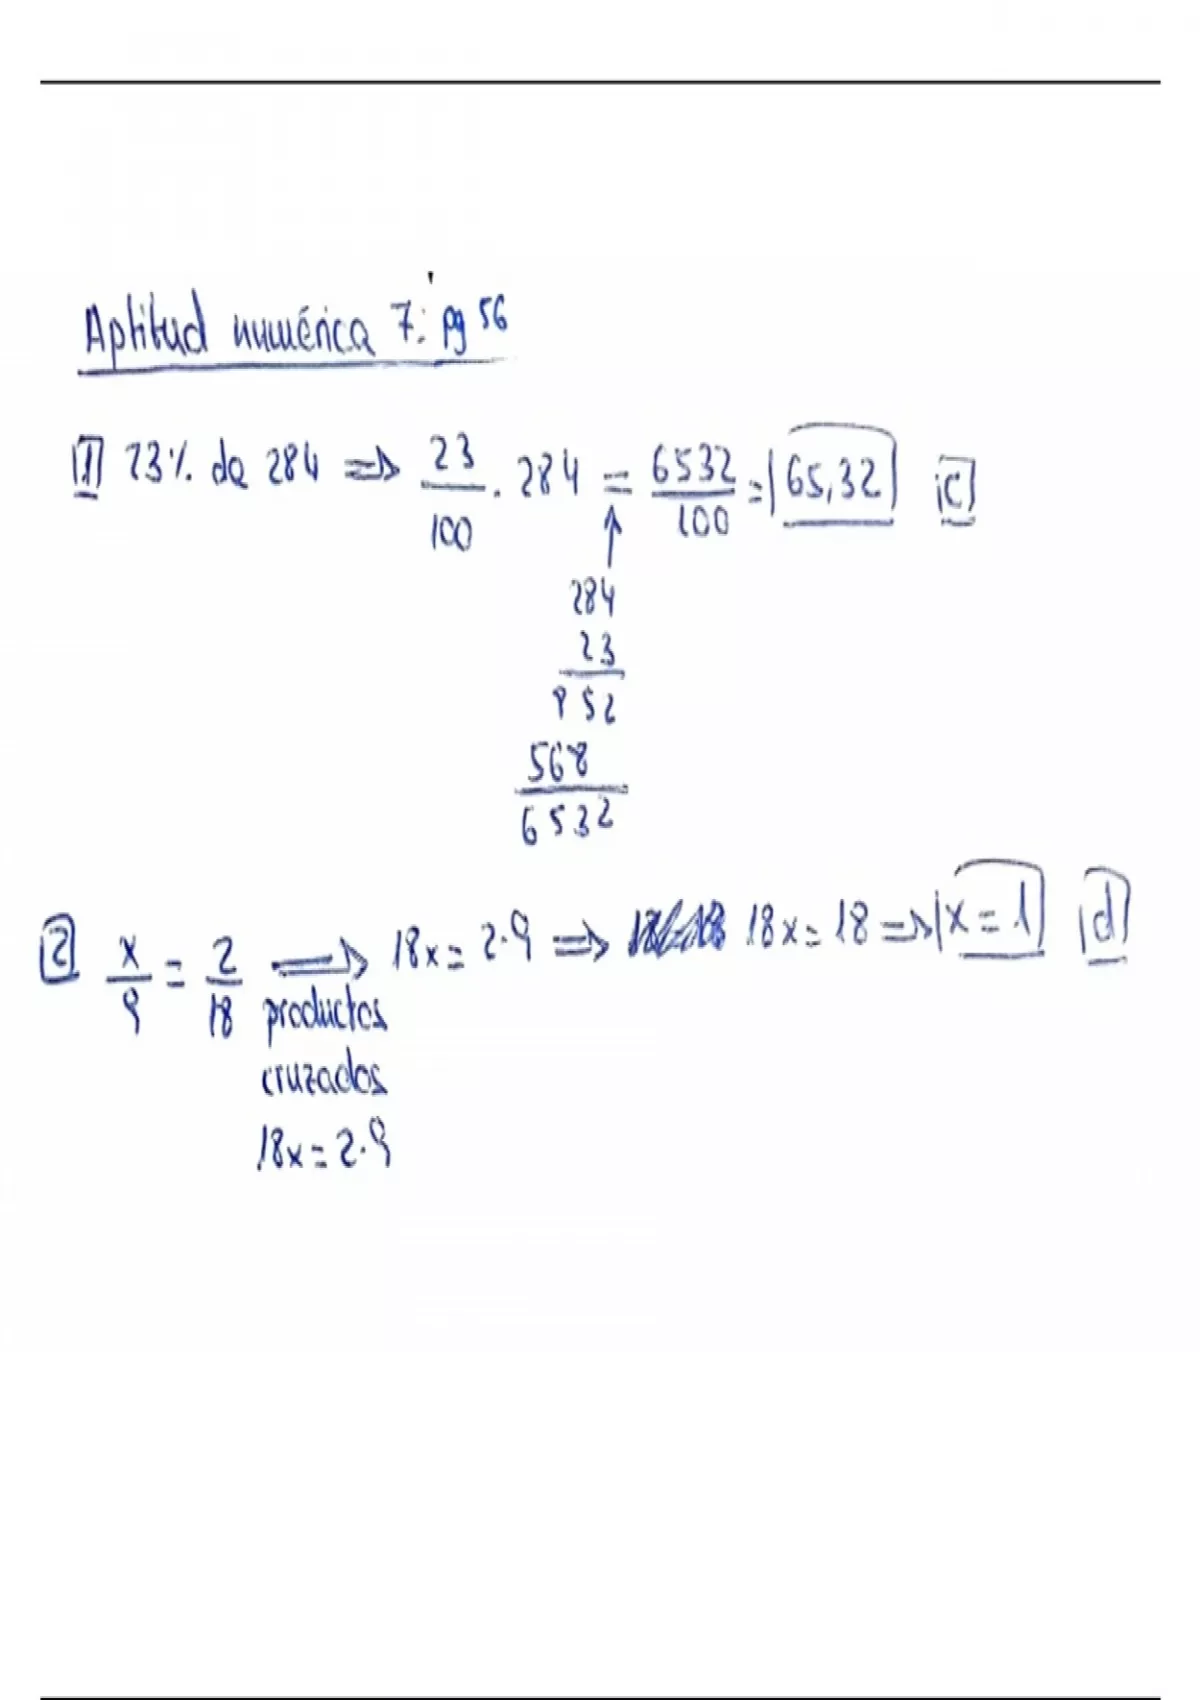 Aptitud numérica 7: pg 56
1) 23% de 284 => 23/100 · 284 = 6532/100 = 65,32 c)
284
23
852
568
6532
2) x/9 = 2/18 => 18x = 2·9 => 18x = 18 => x = 1 d)
productos
cruzados
18x = 2·9